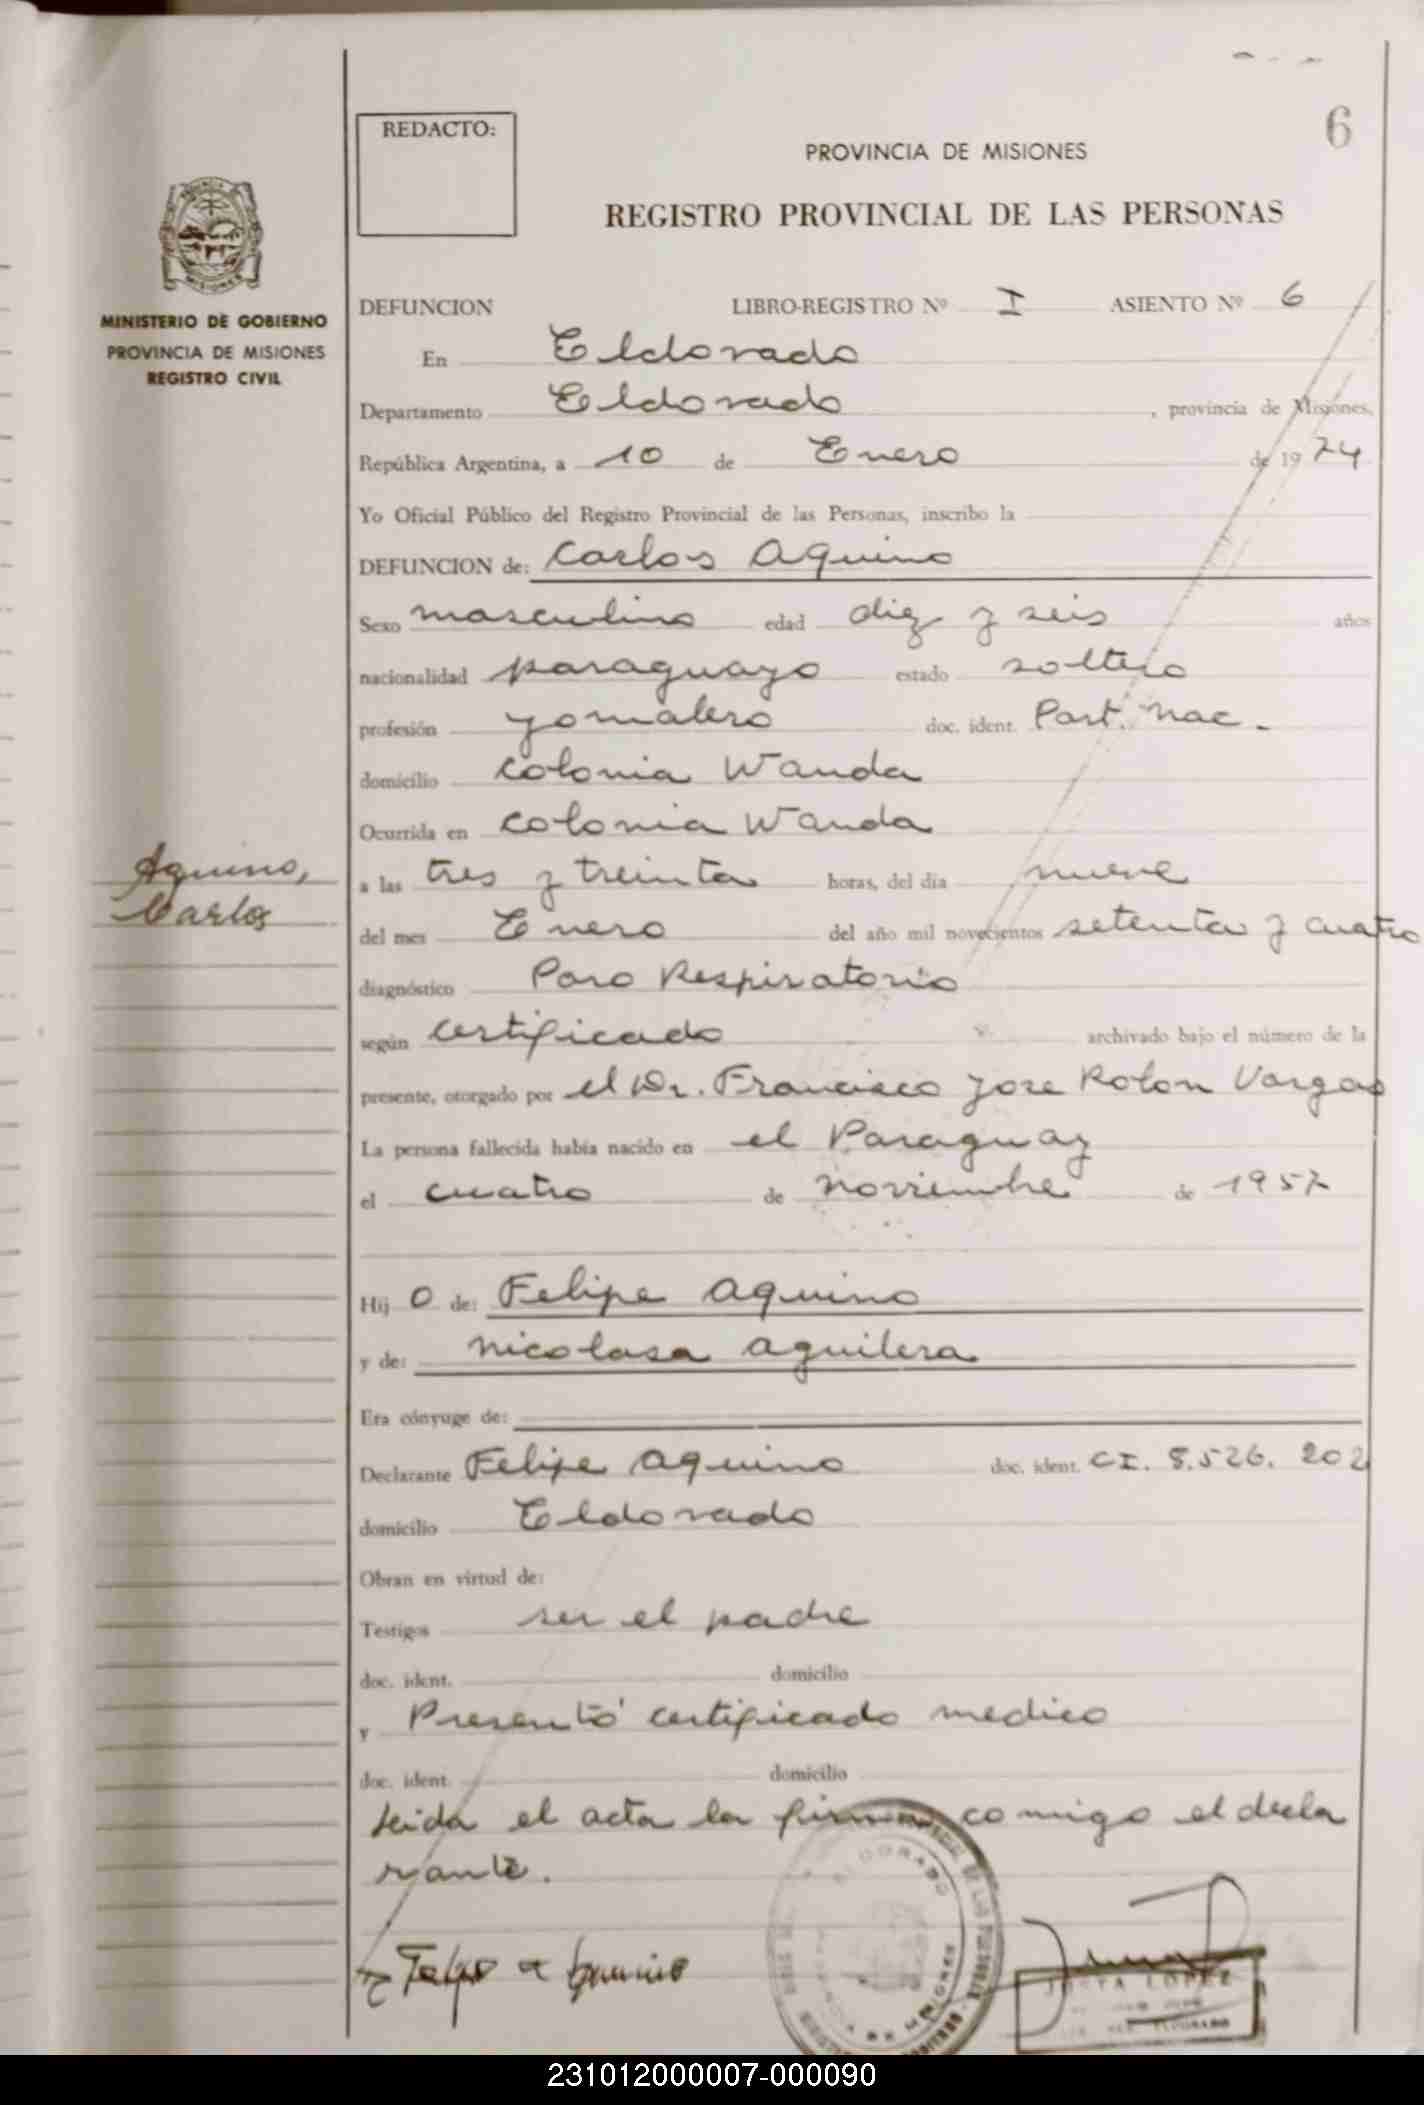 6
REDACTO:
PROVINCIA DE MISIONES
REGISTRO PROVINCIAL DE LAS PERSONAS
MINISTERIO DE GOBIERNO
PROVINCIA DE MISIONES
REGISTRO CIVIL
DEFUNCION LIBRO-REGISTRO Nº I ASIENTO Nº 6
En Eldorado
Departamento Eldorado, provincia de Misiones,
República Argentina, a 10 de Enero de 1974
Yo Oficial Público del Registro Provincial de las Personas, inscribo la
DEFUNCION de: Carlos Aquino
Sexo masculino edad diez y seis años
nacionalidad paraguayo estado soltero
profesión jornalero doc. ident. Part. nac.
domicilio Colonia Wanda
Ocurrida en Colonia Wanda
Aquino,
Carlos
a las tres y treinta horas, del día nueve
del mes Enero del año mil novecientos setenta y cuatro
diagnóstico Paro Respiratorio
según certificado archivado bajo el número de la
presente, otorgado por el Dr. Francisco Jose Rolon Vargas
La persona fallecida había nacido en el Paraguay
el cuatro de noviembre de 1957
Hij o de: Felipe Aquino
y de: nicolasa aguilera
Era cónyuge de:
Declarante Felipe Aquino doc. ident. CI. 8.526.202
domicilio Eldorado
Obran en virtud de:
Testigos ser el padre
doc. ident. domicilio
y Presentó certificado medico
doc. ident. domicilio
Leida el acta la firma comigo el decla
rante.
ELDORADO
PROVINCIA DE MISIONES
LOPEZ
ELDORADO
231012000007-000090